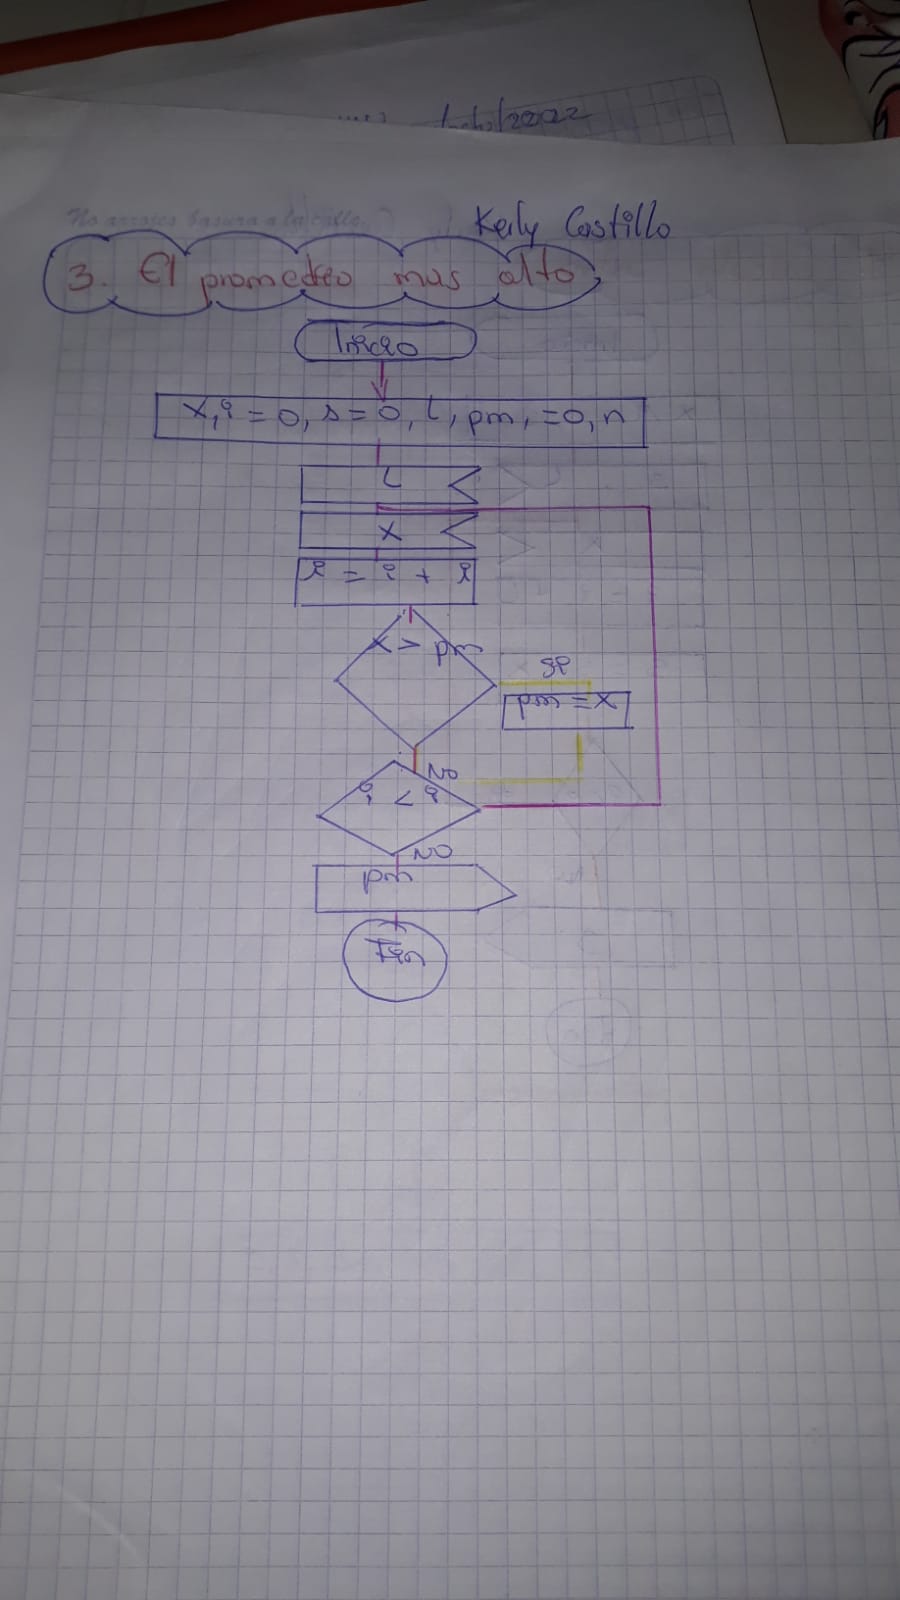 /2022
No arrojes basura a la calle.
Keily Castillo
3. El promedio mas alto
Inicio
x, i = 0, s = 0, l, pm, = 0, n
L
x
i = i + i
x > pm
si
pm = x
no
i < i
no
pm
Fin